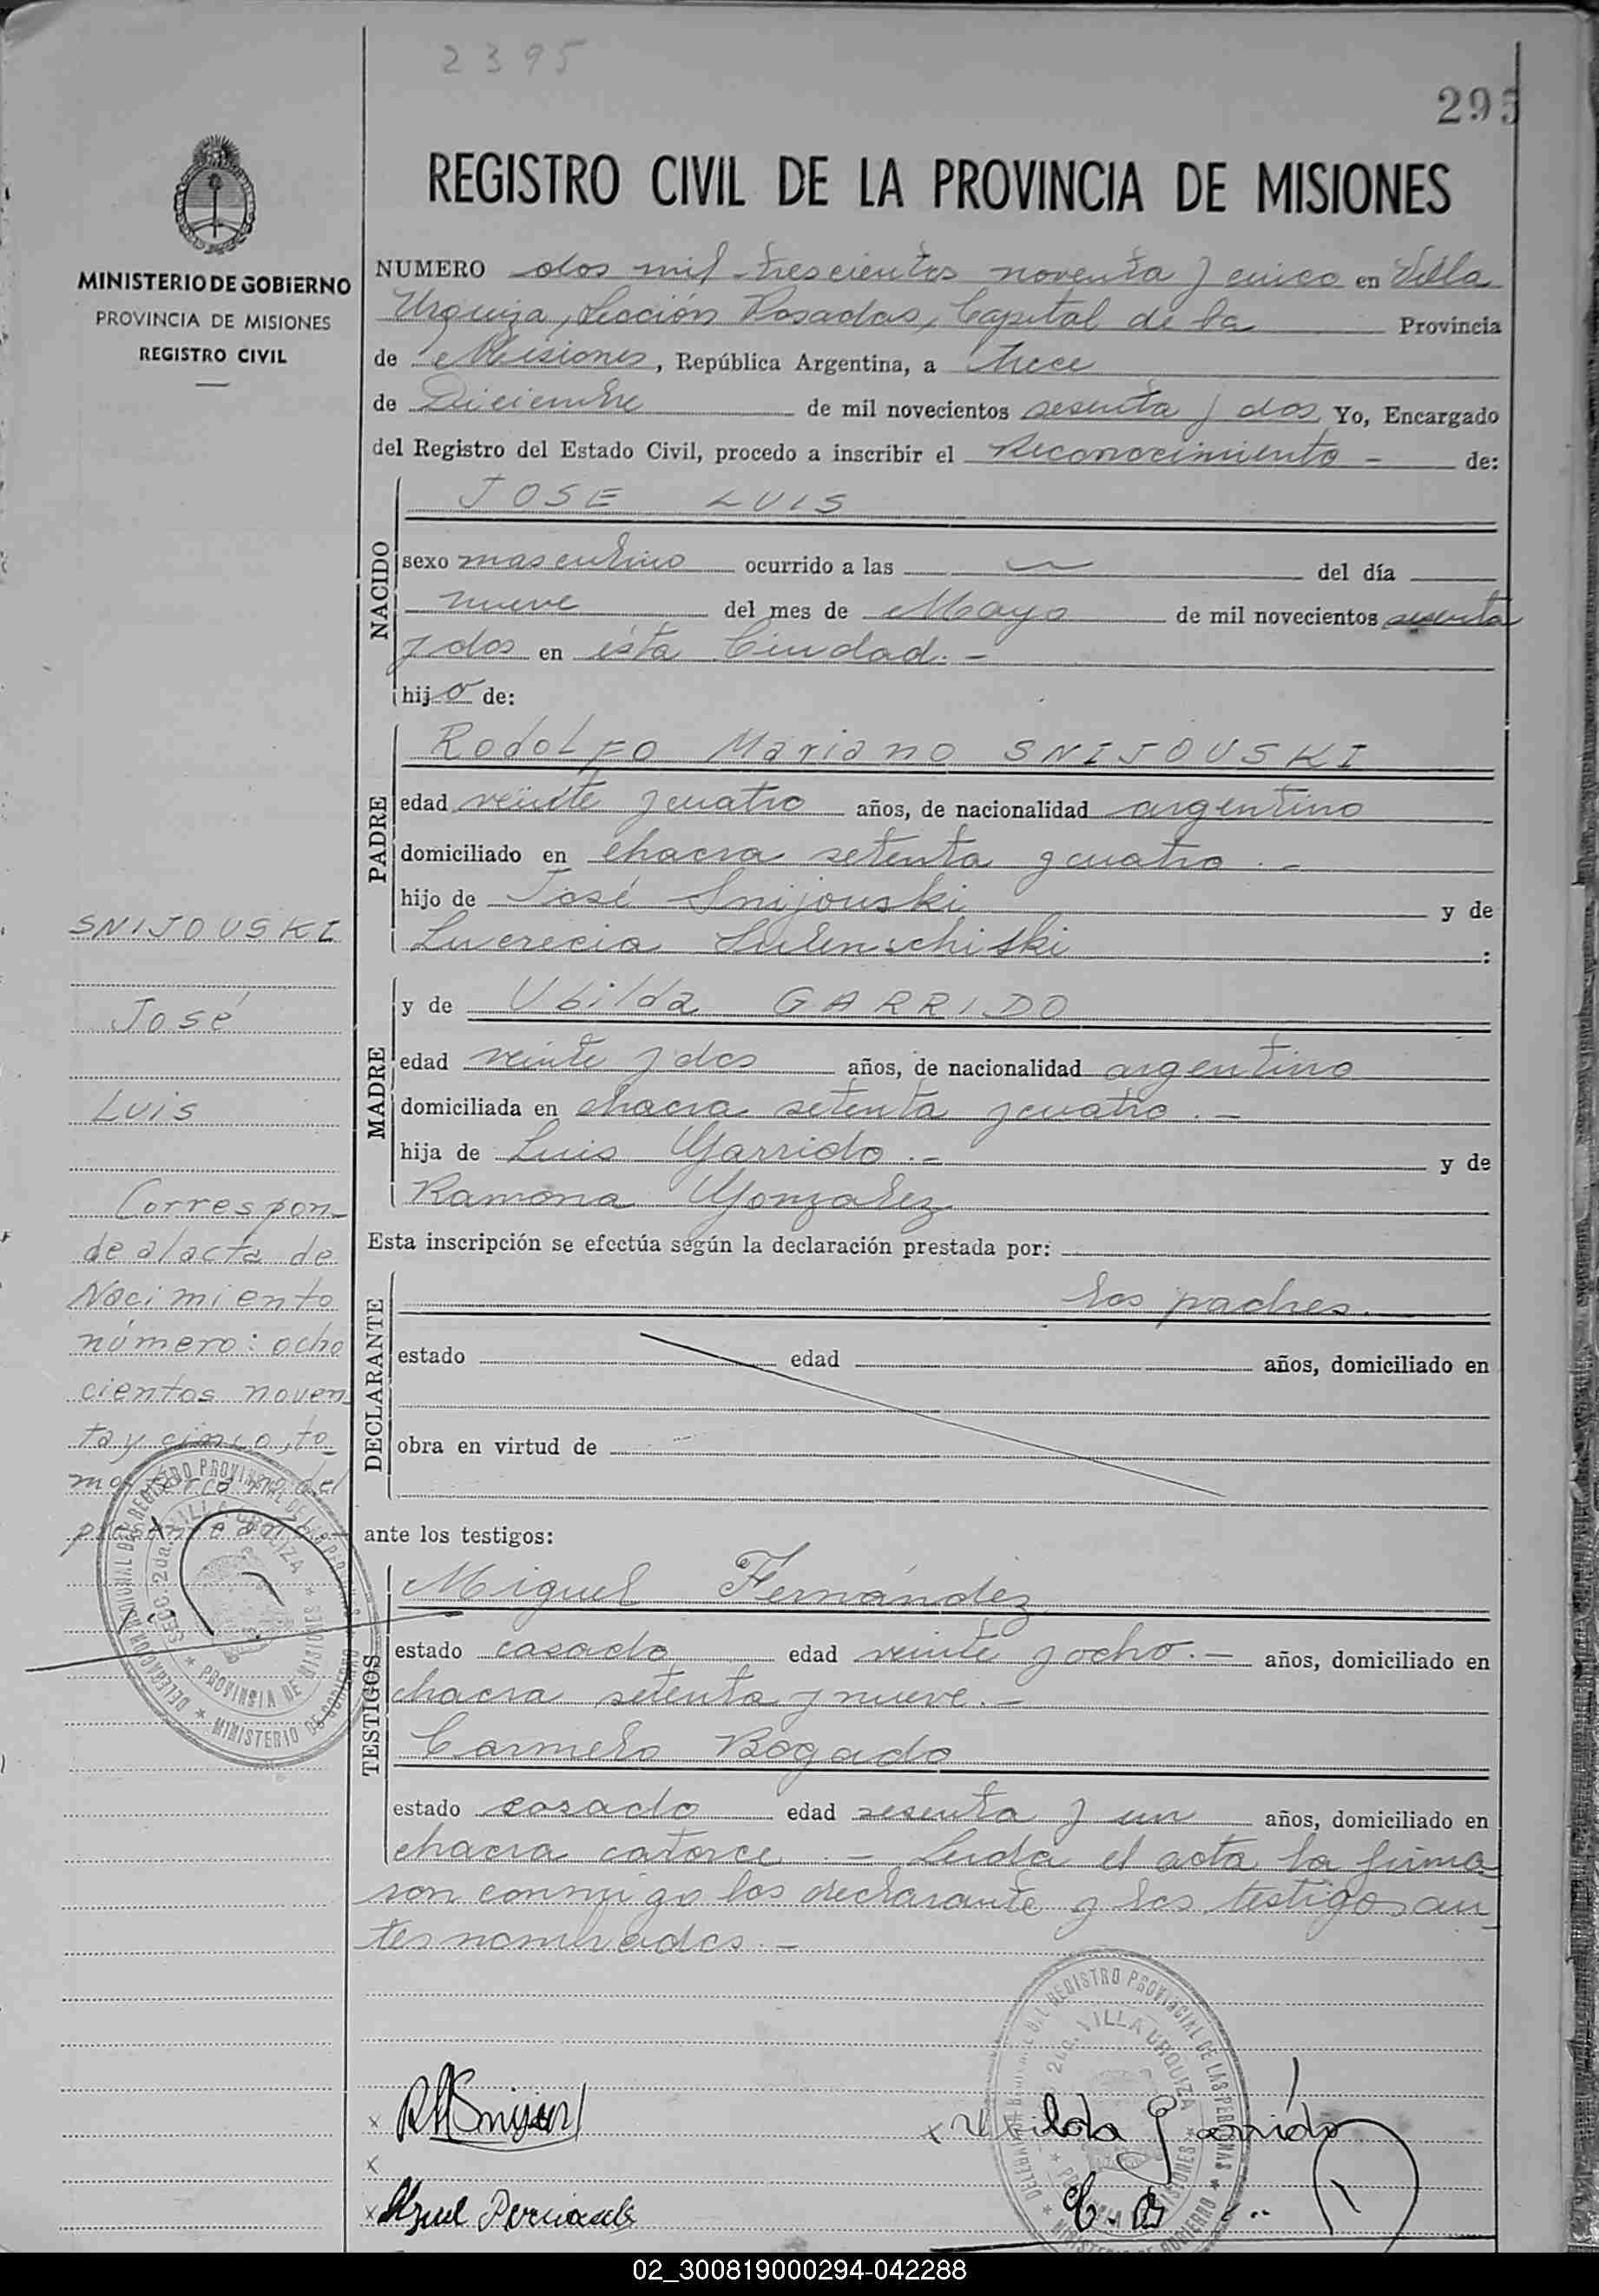 2395
295
REGISTRO CIVIL DE LA PROVINCIA DE MISIONES
MINISTERIO DE GOBIERNO
PROVINCIA DE MISIONES
REGISTRO CIVIL
NUMERO dos mil trescientos noventa y cinco en Villa
Urquiza, Sección Posadas, Capital de la Provincia
de Misiones, República Argentina, a trece
de Diciembre de mil novecientos sesenta y dos Yo, Encargado
del Registro del Estado Civil, procedo a inscribir el Reconocimiento - de:
NACIDO
JOSE LUIS
sexo masculino ocurrido a las del día
nueve del mes de Mayo de mil novecientos sesenta
y dos en ésta Ciudad. -
hijo de:
PADRE
Rodolfo Mariano SNIJOUSKI
edad veinte y cuatro años, de nacionalidad argentino
domiciliado en chacra setenta y cuatro. -
hijo de José Snijouski y de
Lucrecia :
MADRE
y de Ubilda GARRIDO
edad veinte y dos años, de nacionalidad argentino
domiciliada en chacra setenta y cuatro. -
hija de Luis Garrido. - y de
Ramona Gonzalez
Esta inscripción se efectúa según la declaración prestada por:
DECLARANTE
los padres.
estado edad años, domiciliado en
obra en virtud de
ante los testigos:
TESTIGOS
Miguel Fernández
estado casado edad veinte y ocho. - años, domiciliado en
chacra setenta y nueve. -
Carmelo Bogado
estado casado edad sesenta y un años, domiciliado en
chacra catorce. - Leida el acta la firma
ron conmigo los declarante y los testigos an
tes nombrados. -
SNIJOUSKI
José
Luis
Correspon-
de al acta de
Nacimiento
número: ocho
cientos noven
ta y cinco, to-
mo del
presente año
DELEGACION REGIONAL DEL REGISTRO PROVINCIAL DE LAS PERSONAS
SECC. 2da. VILLA URQUIZA
PROVINCIA DE MISIONES
MINISTERIO DE GOBIERNO
DEL REGISTRO PROVINCIAL DE LAS PERSONAS
VILLA URQUIZA
MINISTERIO DE GOBIERNO
x
x Ubilda Garrido
x
x
C. B
02_300819000294-042288